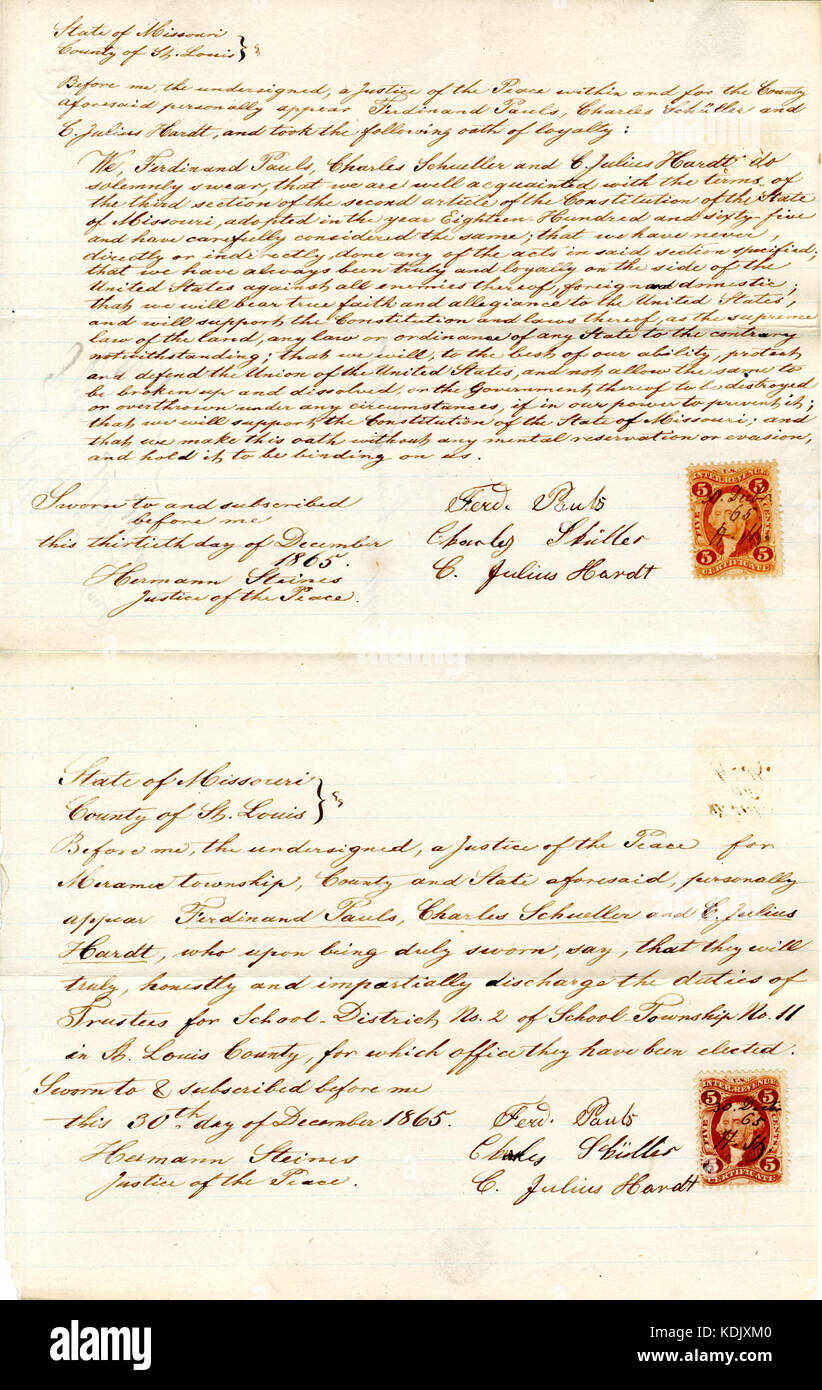 State of Missouri
County of St. Louis } ss
Before me, the undersigned, a Justice of the Peace within and for the County
aforesaid personally appear Ferdinand Pauls, Charles Schüller and
C. Julius Hardt, and took the following oath of loyalty:
We, Ferdinand Pauls, Charles Schueller and C. Julius Hardt do
solemnly swear, that we are well acquainted with the terms of
the third section of the second article of the Constitution of the State
of Missouri, adopted in the year Eighteen Hundred and sixty five
and have carefully considered the same; that we have never,
directly or indirectly, done any of the acts in said section specified;
that we have always been truly and loyally on the side of the
United States against all enemies thereof, foreign and domestic;
that we will bear true faith and allegiance to the United States,
and will support the Constitution and laws thereof, as the supreme
law of the land, any law or ordinance of any State to the contrary
notwithstanding; that we will, to the best of our ability, protect
and defend the Union of the United States, and not allow the same to
be broken up and dissolved, or the Government thereof to be destroyed
or overthrown under any circumstances, if in our power to prevent it;
that we will support the Constitution of the State of Missouri; and
that we make this oath without any mental reservation or evasion,
and hold it to be binding on us.
Sworn to and subscribed
before me
this thirtieth day of December
1865.
Hermann Steines
Justice of the Peace.
Ferd. Pauls
Charles Schüller
C. Julius Hardt
U.S.
5 INTER. REVENUE 5
FIVE CENTS
30 Decbr
65
H. St.
5 CERTIFICATE 5
State of Missouri
County of St. Louis } ss
Before me, the undersigned, a Justice of the Peace for
Meramec township, County and State aforesaid, personally
appear Ferdinand Pauls, Charles Schueller and C. Julius
Hardt, who upon being duly sworn, say, that they will
truly, honestly and impartially discharge the duties of
Trustees for School-District No. 2 of School-Township No. 11
in St. Louis County, for which office they have been elected.
Sworn to & subscribed before me
this 30th day of December 1865.
Hermann Steines
Justice of the Peace.
Ferd. Pauls
Charles Schüller
C. Julius Hardt
U.S.
5 INTER. REVENUE 5
FIVE CENTS
30 Decbr
65
H. St.
5 CERTIFICATE 5
alamy
Image ID: KDJXM0
www.alamy.com